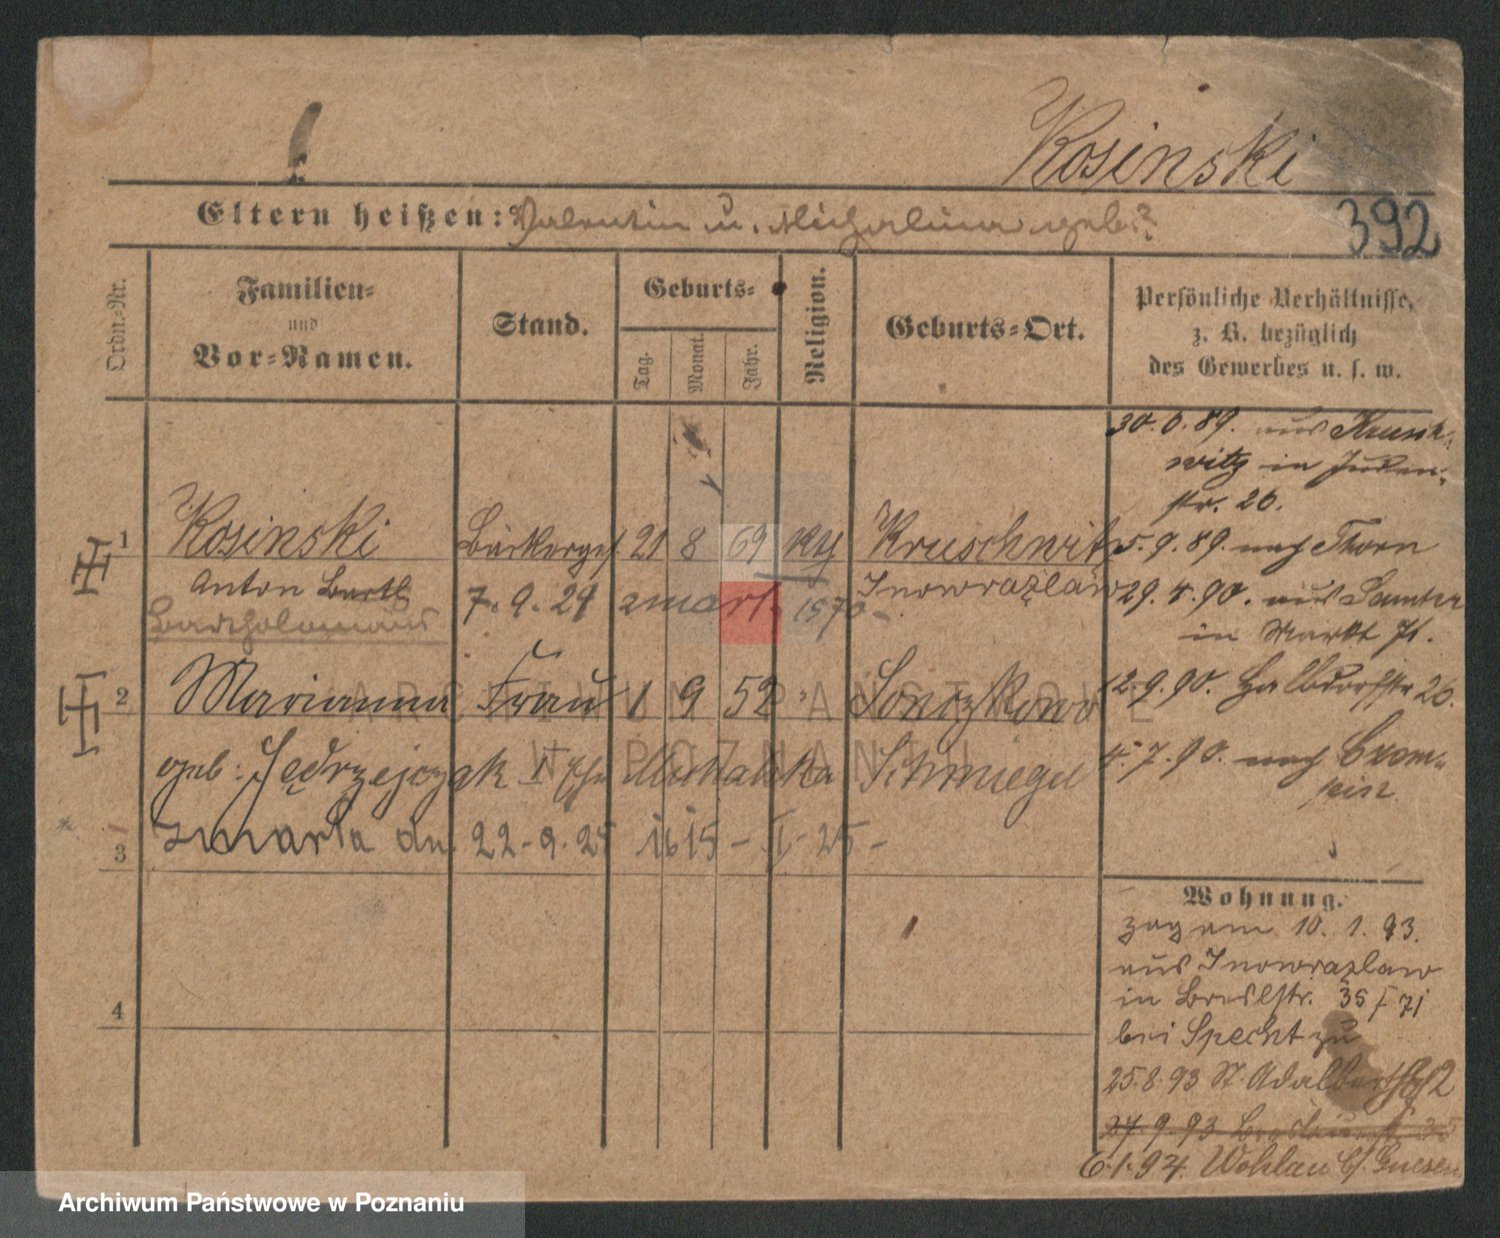 Kosinski
Eltern heißen: Valentin u. Michalina geb. ?
392
Ordn.-Nr.
Familien-
und
Vor-Namen.
Stand.
Geburts-
Tag.
Monat.
Jahr.
Religion.
Geburts-Ort.
Persönliche Verhältnisse,
z. B. bezüglich
des Gewerbes u. s. w.
30. 6. 89. aus Krusch-
witz in Juden-
str. 26.
1 Kosinski Bäckerges. 21 8 69 Kruschwitz
5. 9. 89. nach Thorn
Anton Barth Inowrazlaw
7. 9. 29 zmarł 1570 -
Bartholomäus
29. 4. 90. aus Samter
in Markt 71.
2 Marianna Frau 1 9 52 " Sonczkowo
12. 9. 90. Halbdorfstr 26.
geb: Jędrzejczak Schmiegel
4. 7. 90. nach
3 zmarła dn. 22 - 9. 25 1615 - I - 25 -
Wohnung.
zog am 10. 1. 93.
aus Inowrazlaw
in Breslstr. 35 / 71
bei Specht zu
25. 8. 93 St. Adalbert 2
4
27. 9. 93
6. 1. 94. Wohlau b/ Gnesen
ARCHIWUM PAŃSTWOWE
W POZNANIU
Archiwum Państwowe w Poznaniu